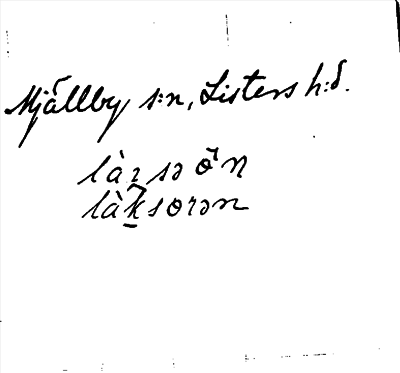 Mjällby s:n, Listers h:d.
làꝛsə ô̄n
làksorən